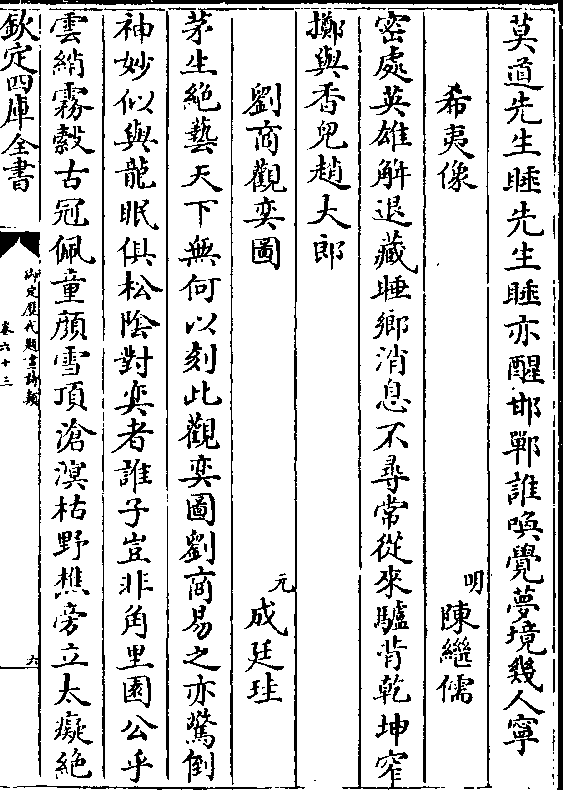 莫道先生睡先生睡亦醒邯鄲誰喚覺夢境幾人寧
希夷像
明陳繼儒
密處英雄解退藏睡鄉消息不尋常從來驢背乾坤窄
擲與香兒趙大郎
劉商觀奕圖
元成廷珪
茅生絶藝天下無何以刻此觀奕圖劉商易之亦驚倒
神妙似與龍眠俱松陰對奕者誰子豈非角里園公乎
雲綃霧縠古冠佩童顔雪頂滄溟枯野樵旁立太癡絶
欽定四庫全書
御定歷代題畫詩類
卷六十三
六